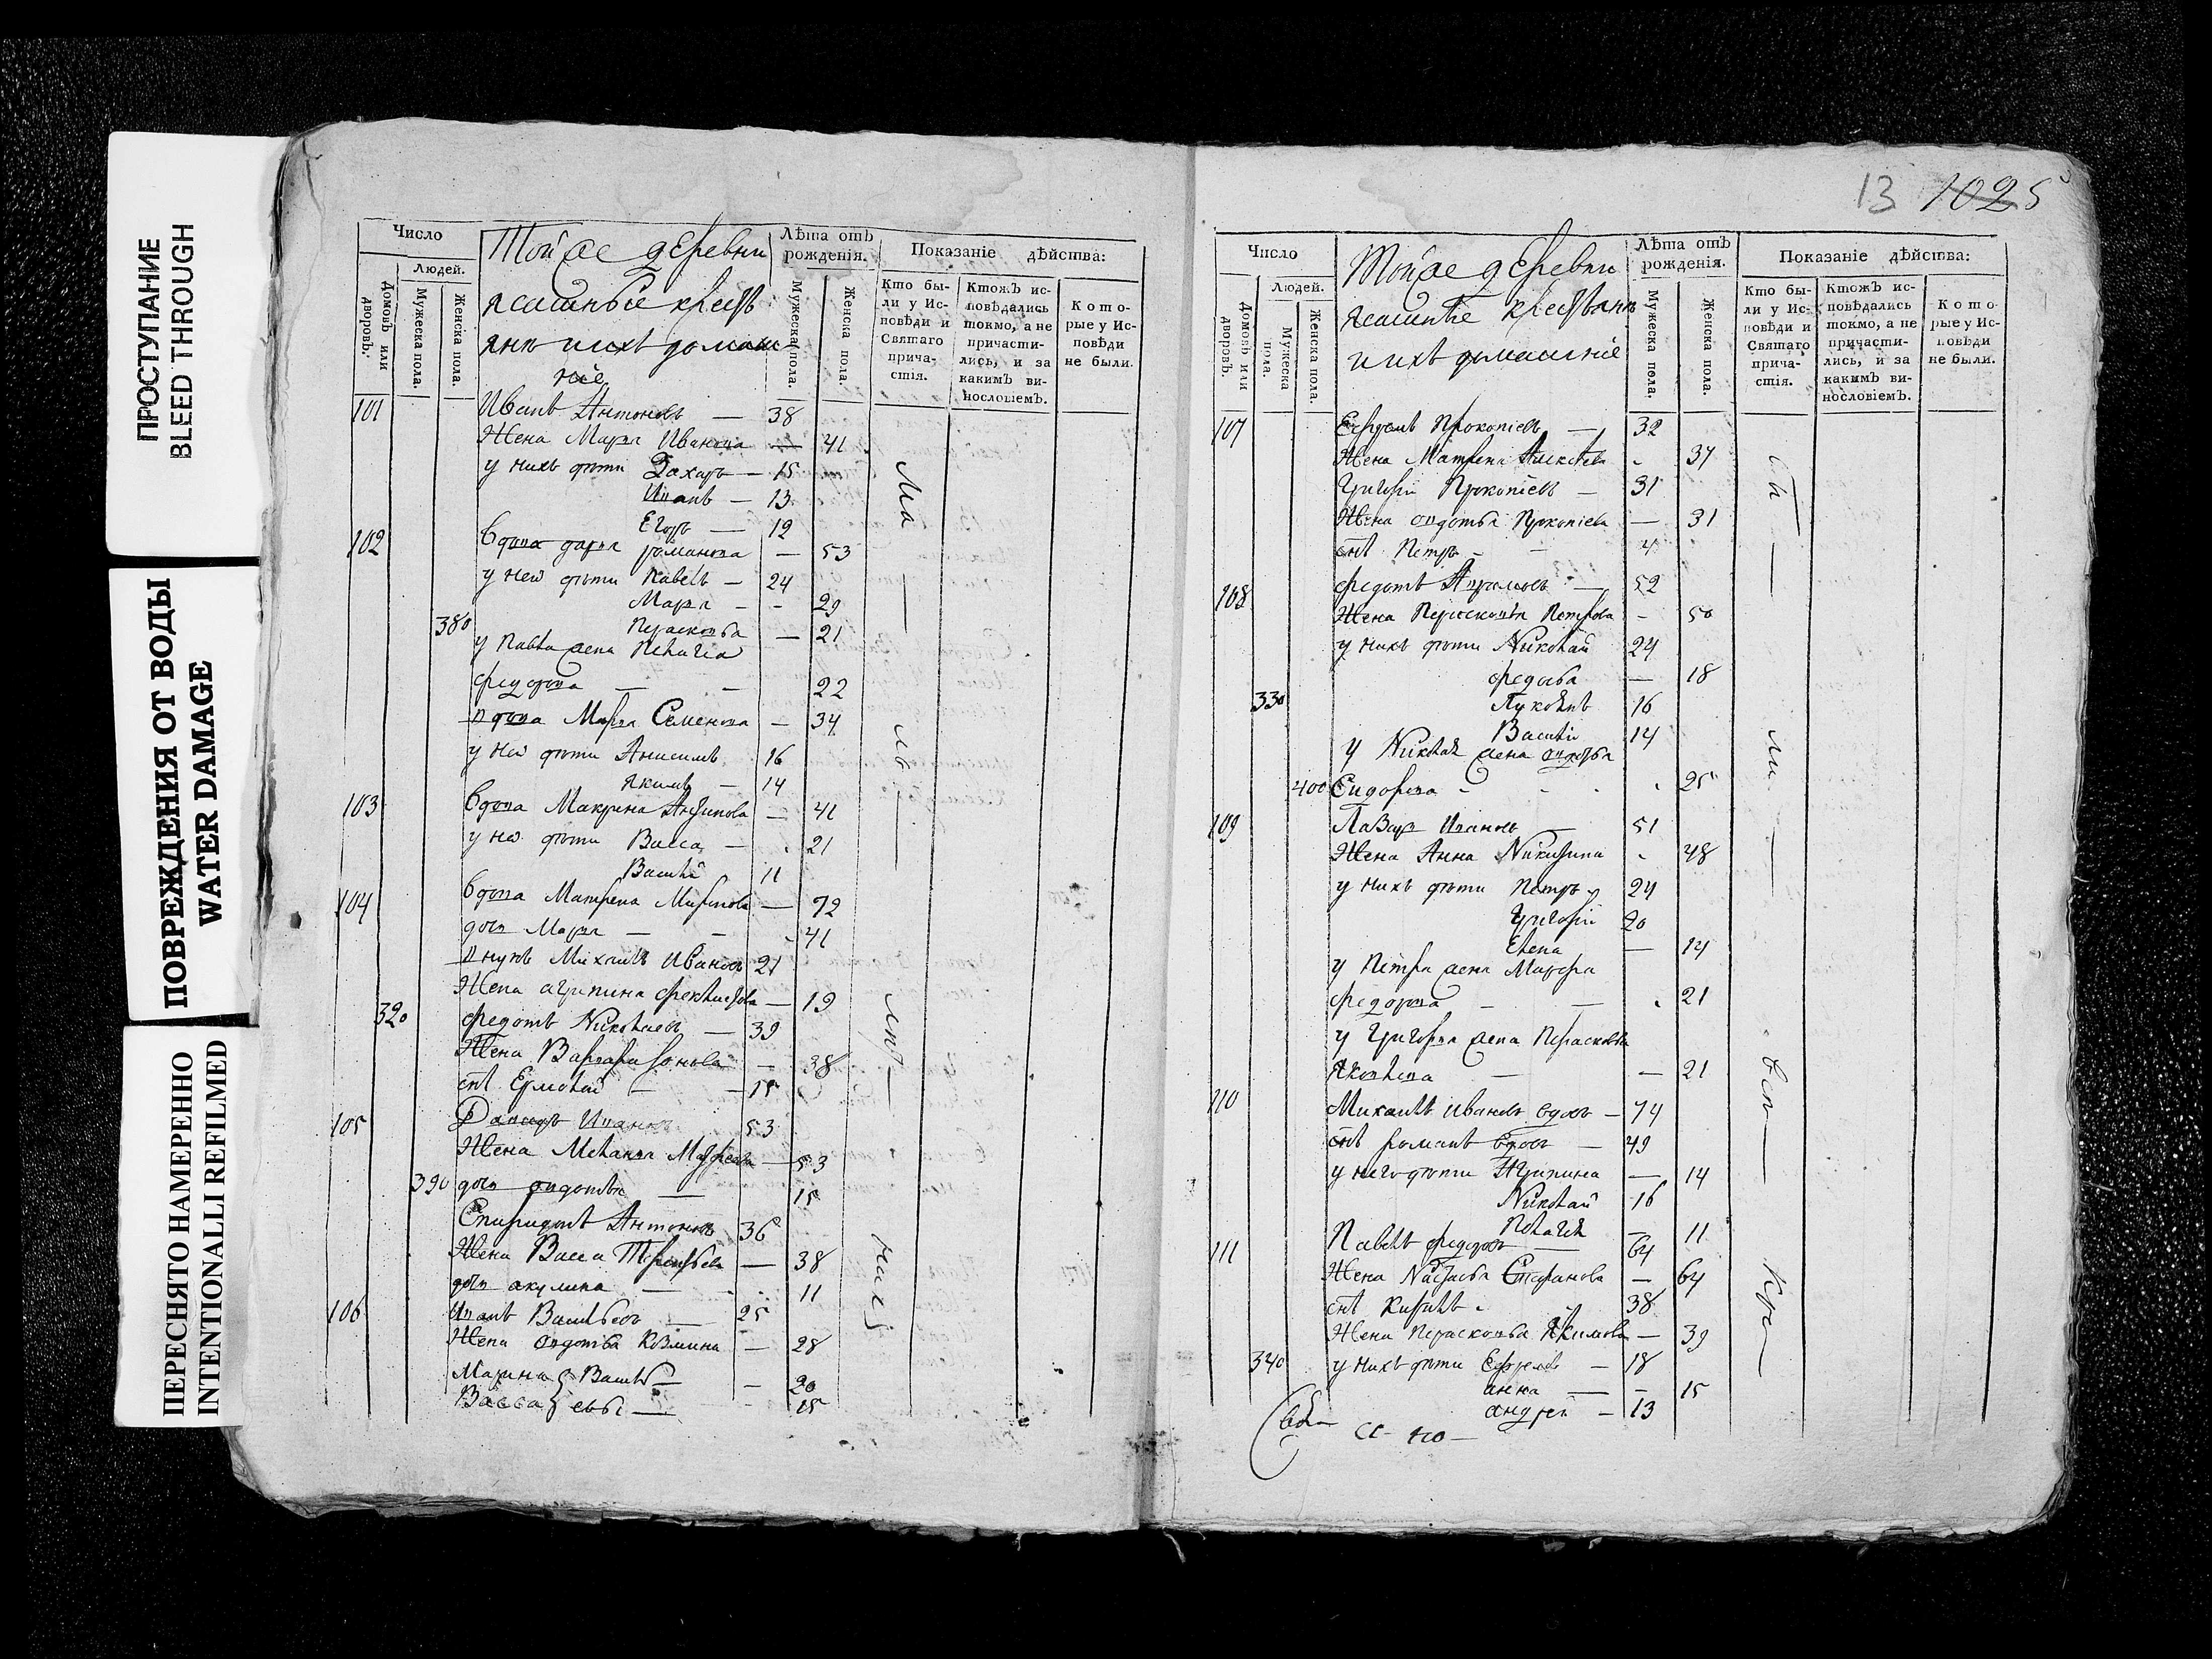 ПРОСТУПАНИЕ
BLEED THROUGH
ПОВРЕЖДЕНИЯ ОТ ВОДЫ
WATER DAMAGE
ПЕРЕСНЯТО НАМЕРЕННО
INTENTIONALLI REFILMED
Число
Людей.
Домовъ или дворовъ.
Мужеска пола.
Женска пола.
Той же деревни
ясашные крестъ
янѣ и ихъ домаш
ніе
Лѣта отъ рождения.
Мужеска пола.
Женска пола.
Показаніе дѣйства:
Кто бы-
ли у Ис-
повѣди и
Святаго
прича-
стія.
Ктожъ ис-
повѣдались
токмо, а не
причасти-
лись, и за
какимъ ви-
нословіемъ.
Кото-
рые у Ис-
повѣди
не были.
101 Иванъ Антоновъ — 38
Жена Марѳа Иванова — 41
у нихъ дѣти Захаръ — 15
Иванъ — 13
Егоръ — 12
102 Вдова Дарья Романова — 53
у ней дѣти Павелъ — 24
Марья - - 29
380 Парасковья — 21
у Павла жена Пелагея
Федорова — — 22
вдова Марѳа Семенова — 34
у ней дѣти Анисимъ 16
Якимъ — 14
103 Вдова Макрина Антипова — 41
у ней дѣти Васса — 21
Василей 11
104 Вдова Матрена — 72
дочь Марья — — 41
внукъ Михаилъ Ивановъ 21
Жена Агрипина — 19
320 Федотъ Николаевъ — 39
Жена Варвара — 38
снъ Ермолай — 15
105 Ивановъ 53
Жена Меланья — 53
390 дочь Авдотья — 15
Спиридонъ Антоновъ 36
Жена Васса Терентьева — 38
дочь Акулина — 11
106 Иванъ Васильевъ — 25
Жена Авдотья Козмина — 28
Марина } Василь — — 20
Васса } евы — 15
13 1025
Число
Людей.
Домовъ или дворовъ.
Мужеска пола.
Женска пола.
Той же деревни
ясашные крестьянѣ
и ихъ домашніе
Лѣта отъ рождения.
Мужеска пола.
Женска пола.
Показаніе дѣйства:
Кто бы-
ли у Ис-
повѣди и
Святаго
прича-
стія.
Ктожъ ис-
повѣдались
токмо, а не
причасти-
лись, и за
какимъ ви-
нословіемъ.
Кото-
рые у Ис-
повѣди
не были.
107 Ефремъ Прокопіевъ — 32
Жена Матрена Алексѣева - 37
Григорій Прокопіевъ — 31
Жена Авдотья Прокопіева — 31
снъ Петръ - - 4
108 Федотъ — 52
Жена Парасковья Петрова - 50
у нихъ дѣти Николай 24
Федосья — 18
330 Лукоянъ 16
Василій 14
у Николая жена Авдотья
400 Сидорова - - - 25
109 Лазарь Ивановъ — 51
Жена Анна Никитина - 48
у нихъ дѣти Петръ 24
Григорій 20
Елена — 14
у Петра жена Марѳа
Федорова — — 21
у Григорья жена Парасковья
Яковлева — — 21
110 Михаилъ Ивановъ вдовъ — 74
снъ Романъ вдовъ — 49
у него дѣти Агрипина — 14
Николай 16
Пелагея — 11
111 Павелъ Федоровъ — 64
Жена Настасья Стефанова — 64
снъ Кирилъ - 38
Жена Парасковья Якимова — 39
340 у нихъ дѣти Ефремъ — 18
анна — — 15
андрей — 13